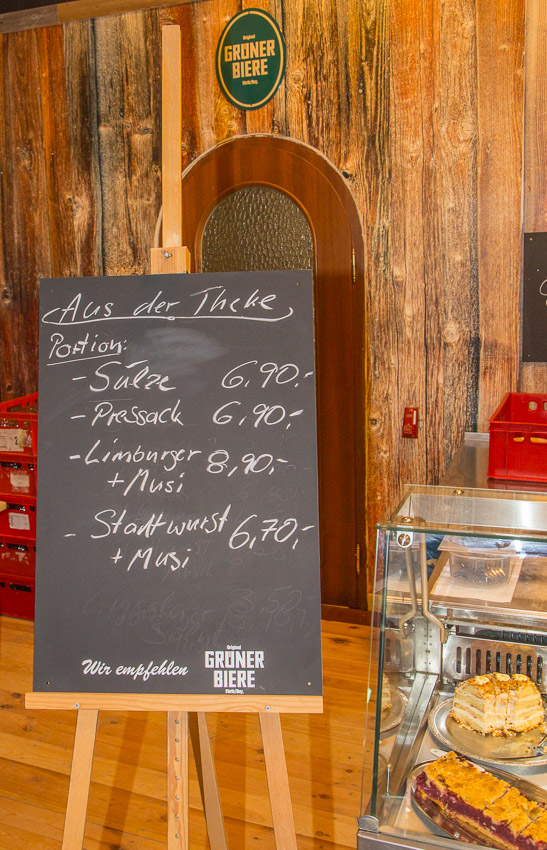 Original
GRÜNER
BIERE
Fürth/Bay.
Aus der Theke
Portion:
- Sülze 6,90,-
- Pressack 6,90,-
- Limburger 8,90,-
+ Musi
- Stadtwurst 6,70,-
+ Musi
Wir empfehlen
Original
GRÜNER
BIERE
Fürth/Bay.